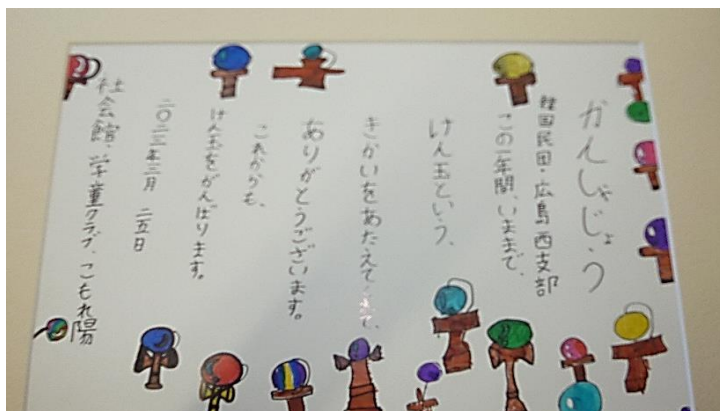 かんしゃじょう
韓国民団・広島西支部
この一年間、いままで、
けん玉という、
きかいをあたえてくれて、
ありがとうございます。
これからも、
けん玉をがんばります。
二〇二三年三月 二五日
社会館、学童クラブ、こもれ陽